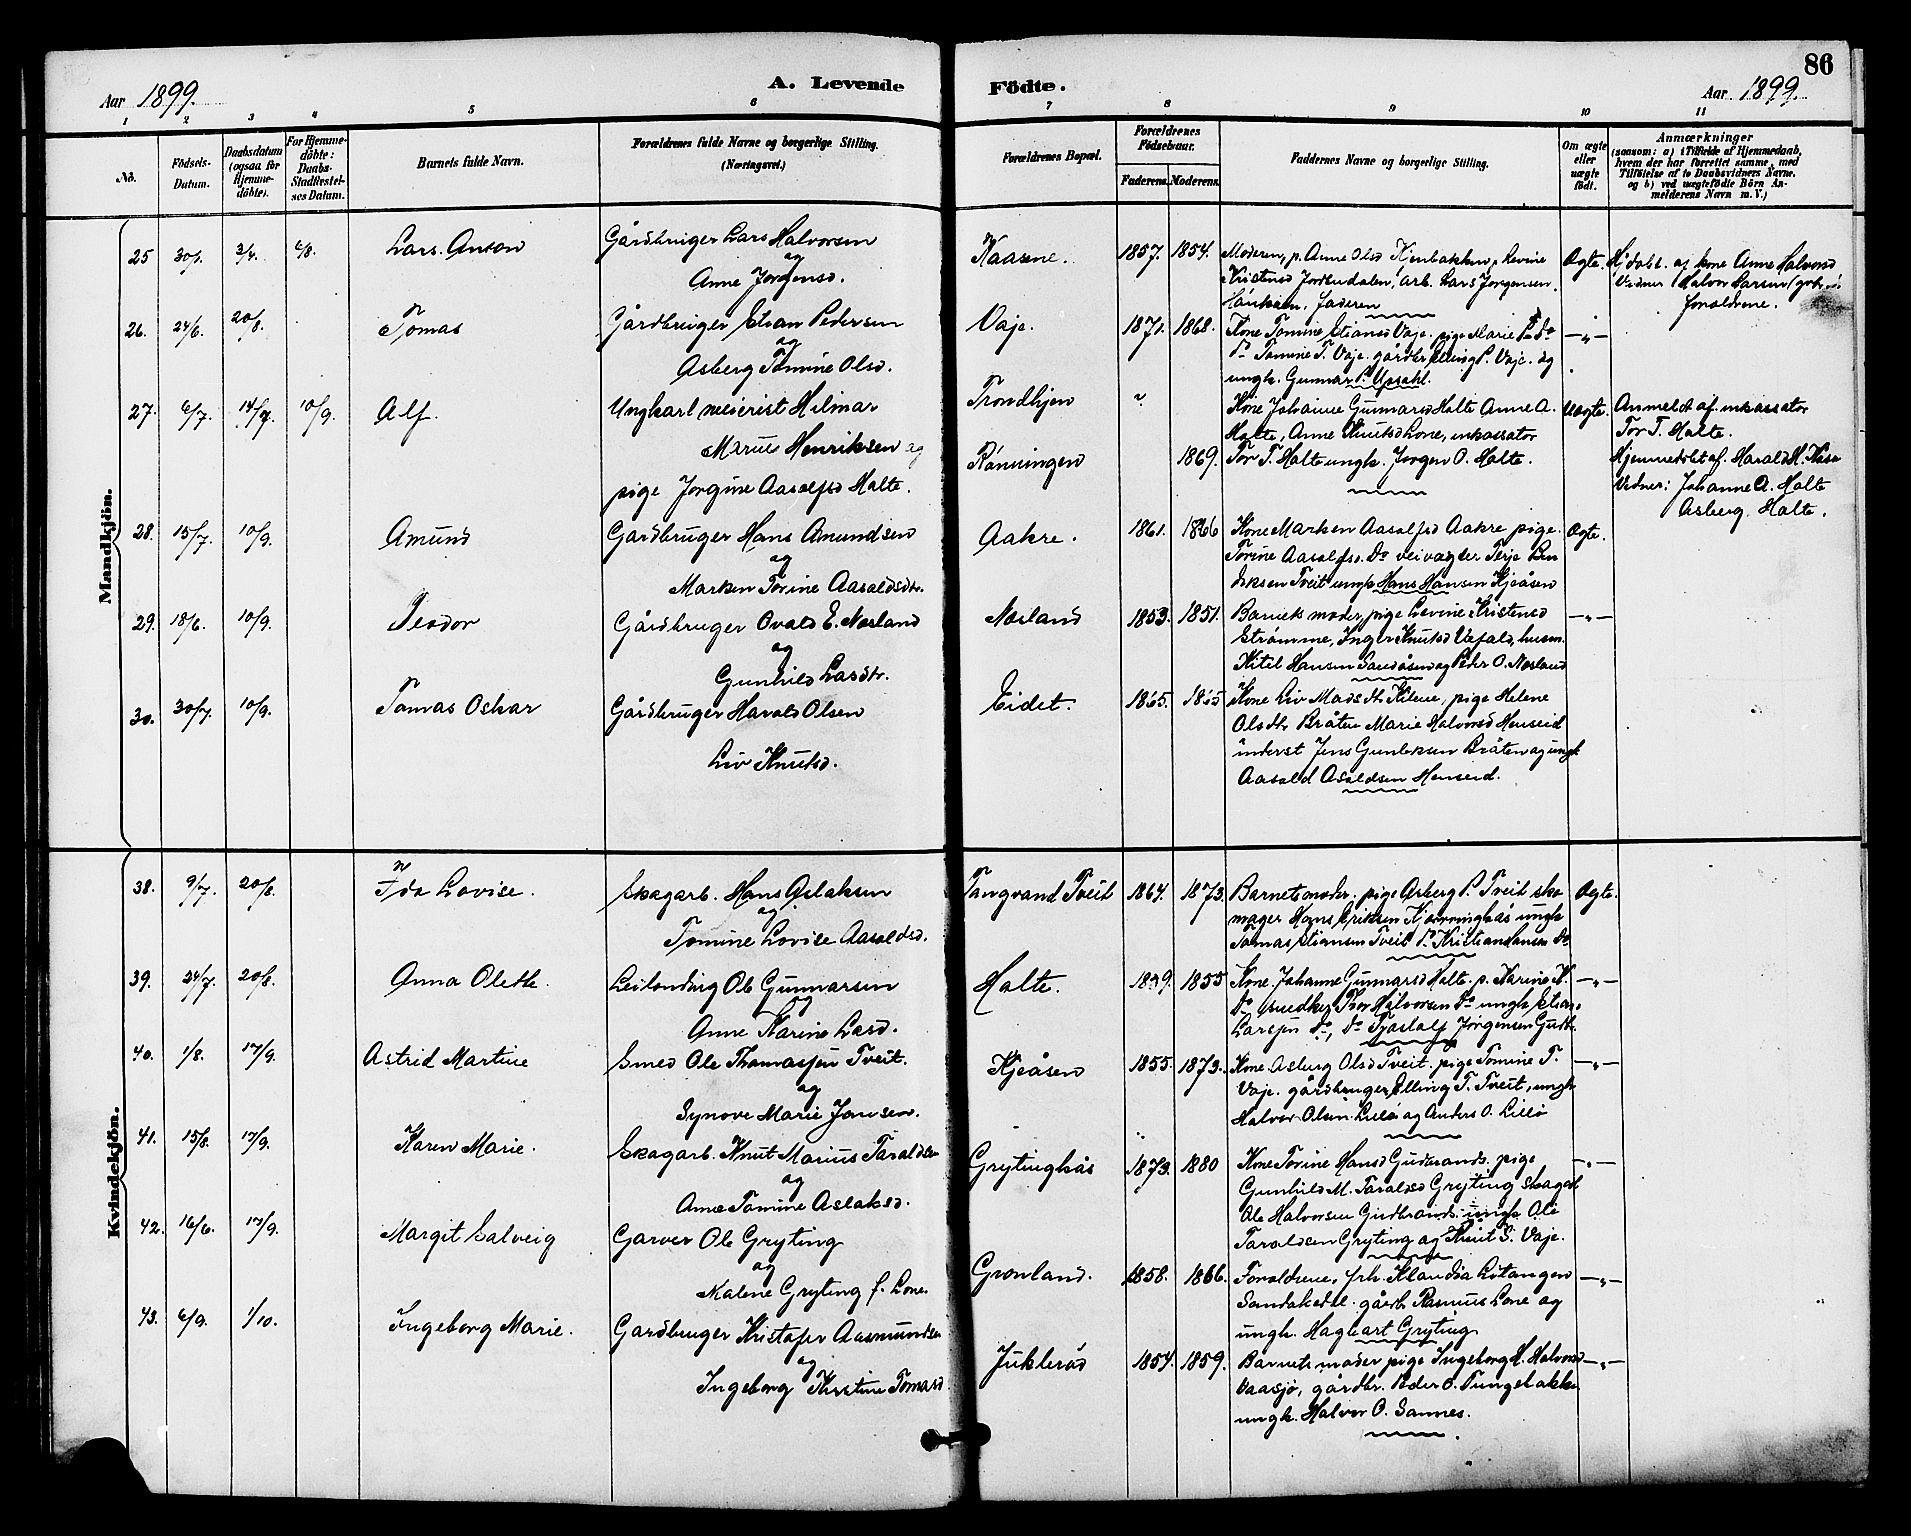 86
Aar 1899.
A. Levende
Födte.
Aar 1899.
1 2 3 4 5 6 7 8 9 10 11
No.
Födsels-
Datum.
Daabsdatum
(ogsaa for
Hjemme-
döbte).
For Hjemme-
döbte:
Daabs-
Stadfæstel-
ses Datum.
Barnets fulde Navn.
Forældrenes fulde Navne og borgerlige Stilling.
(Næringsvei.)
Forældrenes Bopæl.
Forældrenes
Födselsaar.
Faderens.
Moderens.
Faddernes Navne og borgerlige Stilling.
Om ægte
eller
uægte
födt.
Anmærkninger
(saasom: a) i Tilfælde af Hjemmedaab,
hvem der har forrettet samme, med
Tilföielse af to Daabsvidners Navne,
og b) ved uægtefödte Börn An-
melderens Navn m. V.)
Mandkjön.
25 Lars Anton
Gårdbruger Lars Halvorsen
og
Anne Jørgensd.
Kaasene. 1857. 1854.
Moderen, p. Anne Olsd
Kristensd Jordendalen, arb. Lars Jørgensen
Faderen
Ægte.
Hjdøbt. af kone Anne Halvorsd
Vidner Halvor Larsen
foreldrene.
26. 24/6. 20/8. Tomas
Gårdbruger Stian Pedersen
og
Asberg Tomine Olsd.
Vaje. 1871. 1868.
Kone Tomine Stiansd Vaje. pige Marie P. do
do Tomine T. Vaje. gårdbr Elling P. Vaje. og
ungk. Gunnar P. Upsahl.
—„—
27. 6/7. 14/7. 10/9. Alf.
Ungkarl meierist Hilmar
Marius Henriksen og
pige Jørgine Aasolfsd Halte.
Trondhjem
Rønningen
? 1869.
Kone Johanne Gunnarsd Halte Anne A.
Halte, Anne Knutsd Lone, inkassator
Tor T. Halte ungk. Jørgen O. Halte.
Uægte.
Anmeldt af inkassator
Tor T. Halte.
Hjemmedøbt af. Harald H. Kåsa
Vidner: Johanne A. Halte
Asberg. Halte.
28. 15/7. 10/9. Amund
Gårdbruger Hans Amundsen
og
Marken Torine Aasoldsdtr.
Aakre. 1861. 1866
Kone Marken Aasolfsd Aakre pige.
Torine Aasolfsd. do veivogter Terje Ben
diksen Tveit ungk Hans Hansen Kjeåsen
Ægte.
29. 18/6. 10/9. Teodor
Gårdbruger Ovald E. Næsland
og
Gunhild Lasdtr.
Næsland 1853. 1851.
Barnets moder, pige Levine Kristensd
Strømme, Inger Knutsd Vefald, husm.
Kitil Hansen Sandåsen og Peder O. Næsland
—„—
30. 30/7. 10/9. Tomas Oskar
Gårdbruger Harald Olsen
Liv Knutsd.
Eidet. 1865. 1865
Kone Liv Mads dtr Kilene, pige Helene
Olsdtr Bråten Marie Halvorsd Henseid
inderst Jens Gunleksen Bråten og ungk
Aasold Asoldsen Henseid.
Kvindekjön.
38. 9/7. 20/8. Ida Lovise.
Skogarb. Hans Aslaksen
og
Tomine Lovise Aasoldsd.
Tangvand Tveit 1864. 1873.
Barnets moder, pige Asberg P. Tveit sko
mager Hans Eriksen Kjærringkås ungk
Tomas Stiansen Tveit do Kristian Hansen do
Ægte.
39. 24/7. 20/8. Anna Olette.
Leilending Ole Gunnarsen
og
Anne Karine Lasd.
Halte. 1855
Kone Johanne Gunnarsd Halte. p. Karine K.
do, snedker Thor Halvorsen do ungk Stian
Larsen do, do Jørgensen
—„—
40. 1/8. 17/9. Astrid Martine
Smed Ole Thomassen Tveit.
og
Synove Marie Jansen.
Kjeåsen 1855. 1873.
Kone Asberg Olsd Tveit. pige Tomine T.
Vaje. gårdbruger Elling T. Tveit, ungk
Halvor Olsen Lillø og Anders O. Lillø
—„—
41. 15/8. 17/9. Karen Marie.
Skogarb. Knut Marius Taraldsen
og
Anne Tomine Aslaksd.
Grytingkås 1873. 1880
Kone Torine Hansd Gudbrands. pige
Gunhild M. Taraldsd Gryting skogarb
Ole Halvorsen Gudbrands. ungk Ole
Taraldsen Gryting og Knut S. Vaje.
—„—
42. 16/6. 17/9. Margit Solveig
Garver Ole Gryting
og
Malene Gryting f. Lone.
Grønland. 1858. 1866.
Foreldrene, frk. Klandia Litangen
Sandøkedal. gårdb Rasmus Lone og
ungk. Hagbart Gryting
—„—
43. 6/9. 1/10. Ingeborg Marie.
Gårdbruger Kristofer Aasmundsen
og
Ingeborg Kirstine Tomasd
Juklerød 1854. 1859.
Barnets moder pige Ingeborg H. Halvorsd
Vaasjø, gårdbr. Peder O. Tungebakke
ungk. Halvor O. Sannes.
—„—